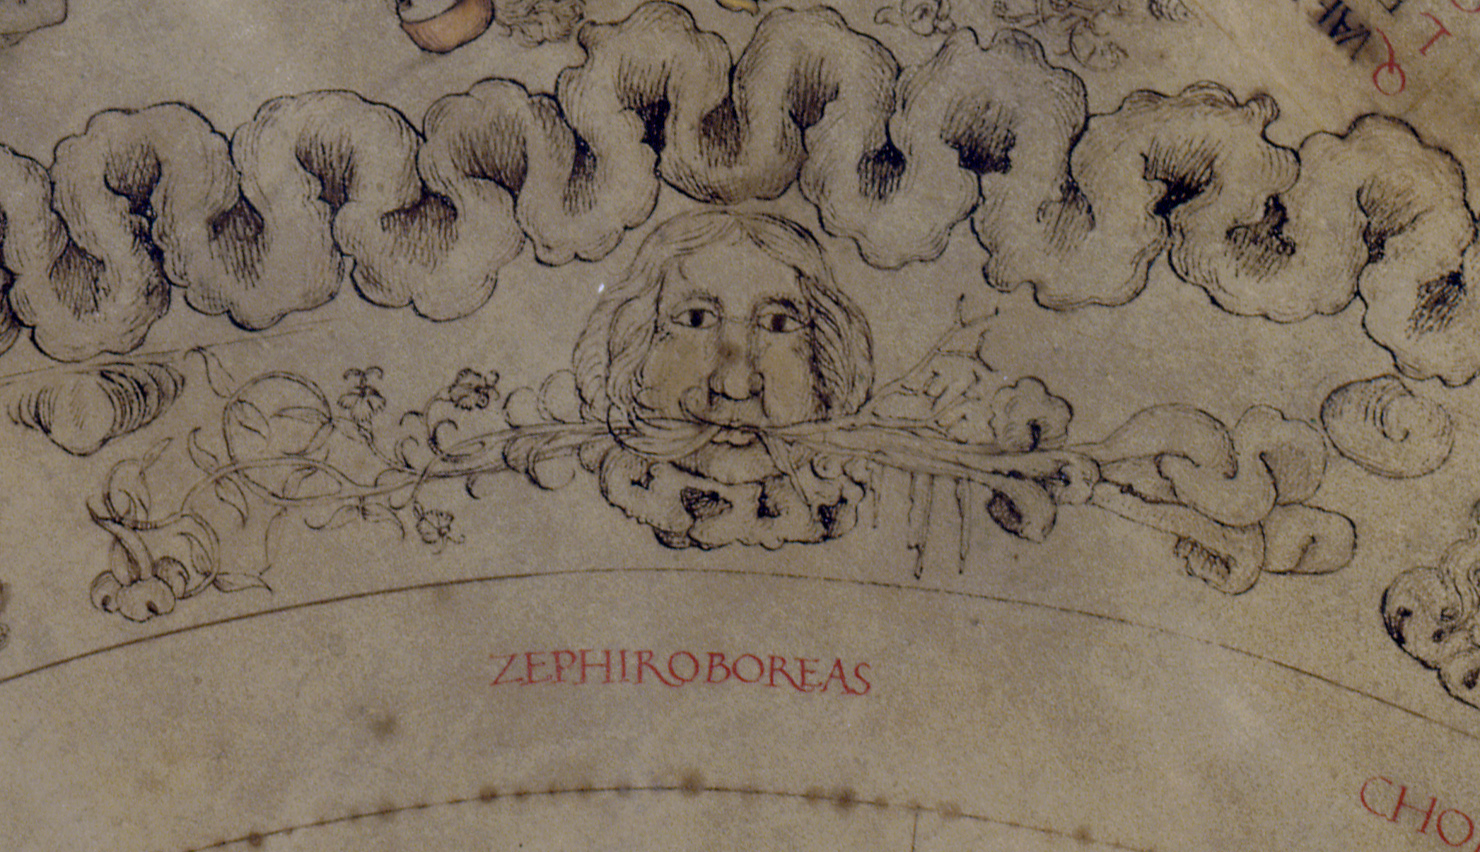 ZEPHIROBOREAS
CHO